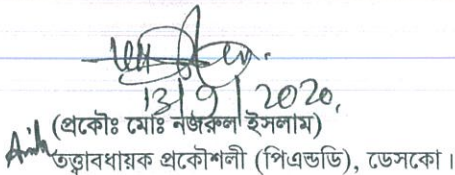 13/9/2020,
(প্রকৌঃ মোঃ নজরুল ইসলাম)
তত্ত্বাবধায়ক প্রকৌশলী (পিএন্ডডি), ডেসকো।